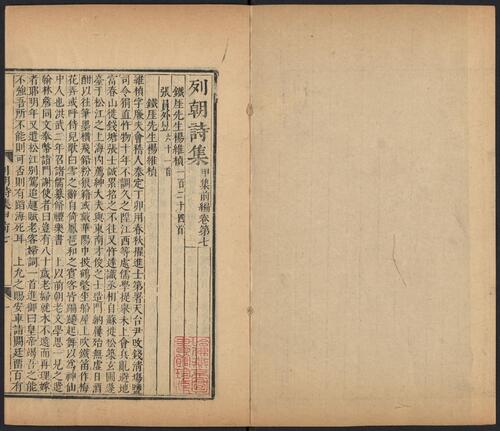 列朝詩集 甲集前編卷第七
鐵厓先生楊維楨一百二十四首
張員外昱六十一首
鐵厓先生楊維楨
維楨字廉夫會稽人泰定丁卯用春秋擢進士第署天台尹改錢清塲鹽
司令狷直忤物十年不調久之陞江西等處儒學提舉未上會兵亂避地
富春山徙錢塘張士誠累招之不往又忤達識丞相自蘇徙松築玄圃蓬
臺于松江之上海內薦紳大夫與東南才俊之士造門納屨殆無虛日酒
酣以往筆墨橫飛
中人也洪武二年召諸儒纂修禮樂書 上以前朝老文學思一見之遣
翰林詹同文奉幣詣門謝使者曰豈有八十歲老婦就木不遠而再理嫁
者耶明年又遣松江別駕追趣賦老客婦詞一首進御曰皇帝竭吾之能
不強吾所不能則可否則有蹈海死耳 上允之賜安車詣闕廷留百有